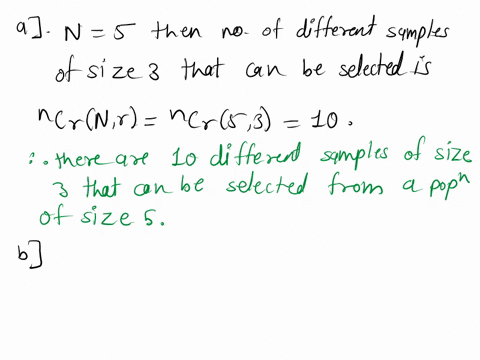 a]. N = 5 then no. of different samples
of size 3 that can be selected is
nCr(N,r) = nCr(5,3) = 10.
∴ there are 10 different samples of size
3 that can be selected from a popⁿ
of size 5.
b]